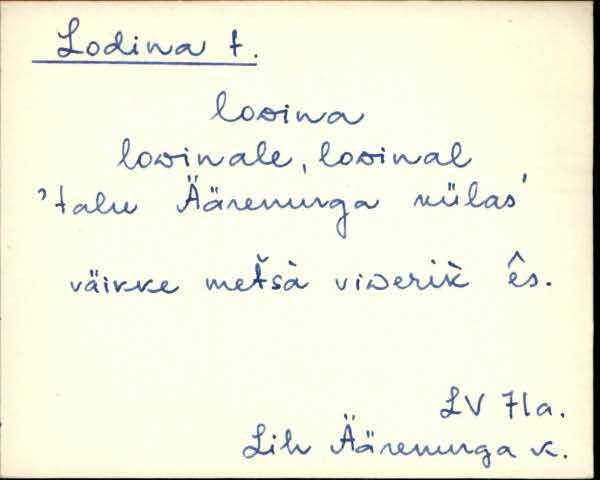 Lodina t.
loσina
loσinale, loσinal
'talu Äärenurga külas'
väikke metšà viσerik̀ ês.
LV 71a.
Lih Äärenurga k.